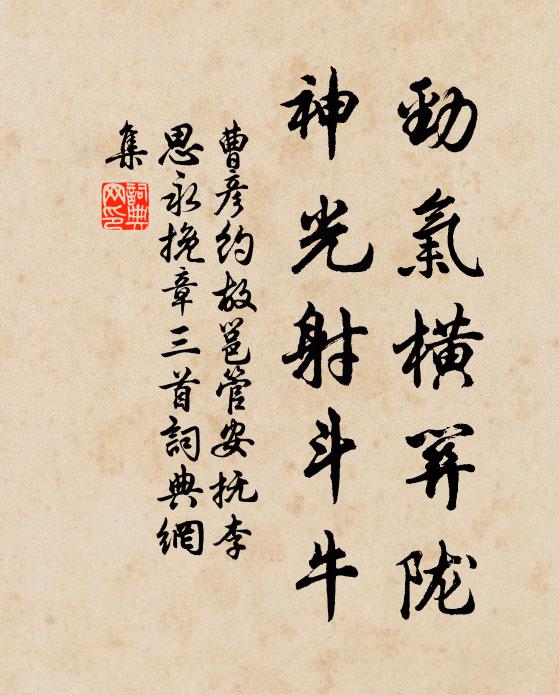 勁氣橫关陇
神光射斗牛
曹彦约故邕管安抚李
思永挽章三首詞典網
集
詞典
网印